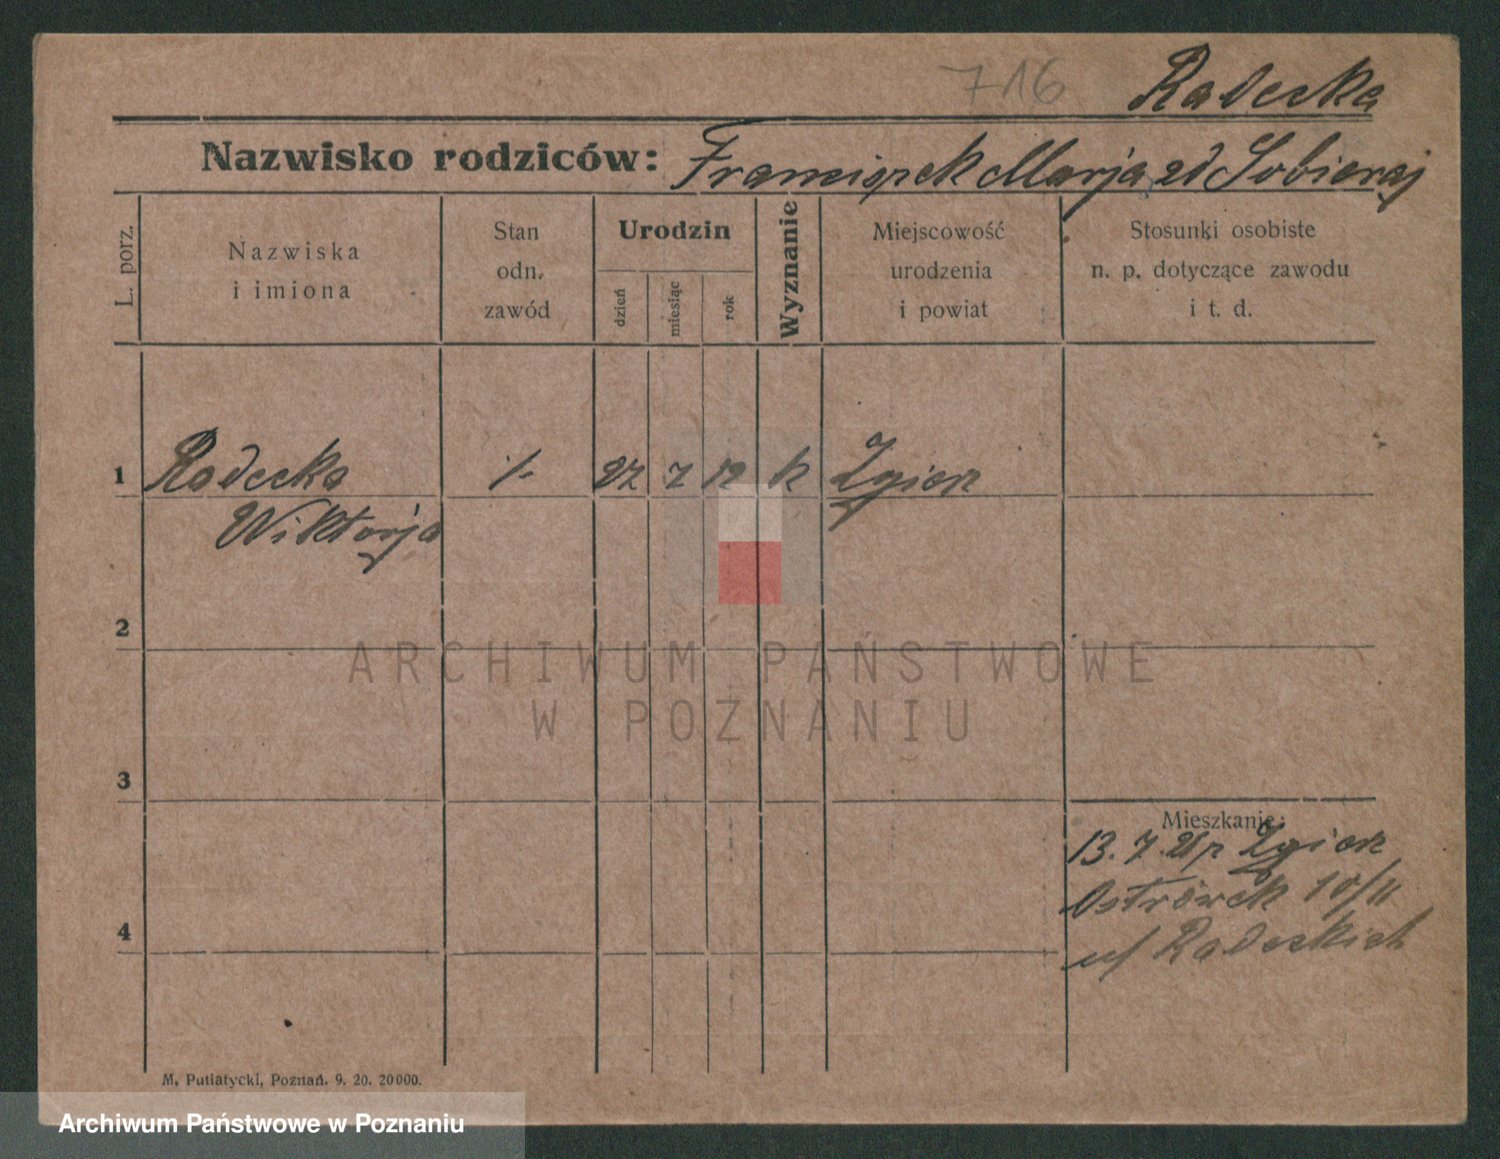 716 Radecka
Nazwisko rodziców: Franciszek Marja zd Sobieraj
L. porz.
Nazwiska
i imiona
Stan
odn.
zawód
Urodzin
dzień
miesiąc
rok
Wyznanie
Miejscowość
urodzenia
i powiat
Stosunki osobiste
n. p. dotyczące zawodu
i t. d.
1 Radecka 1/- 7 k Zgierz
Wiktorja
2
3
4
Mieszkanie:
13. 7. 21 z Zgierz
Ostrówek 10/11
u/ Radeckich
M. Putiatycki, Poznań. 9. 20. 20000.
ARCHIWUM PAŃSTWOWE
W POZNANIU
Archiwum Państwowe w Poznaniu